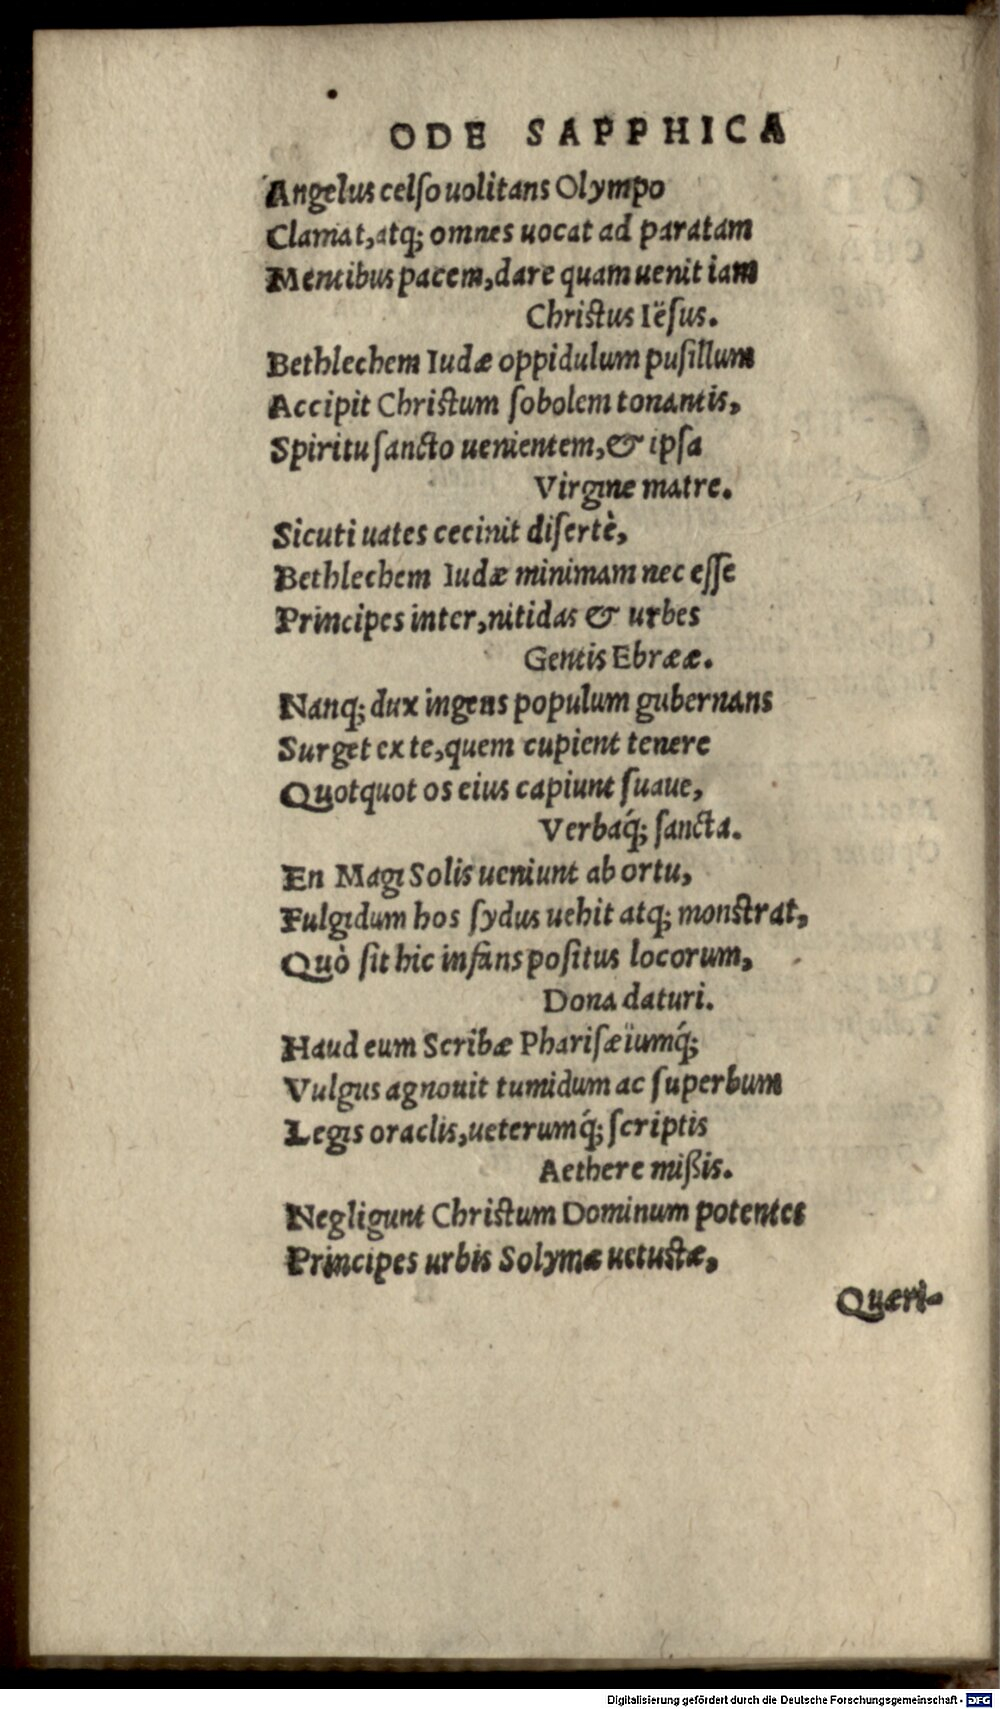 ODE SAPPHICA
Angelus celſo uolitans Olympo
Clamat, atq; omnes uocat ad paratam
Mentibus pacem, dare quam uenit iam
Christus Iëſus.
Bethlechem Iudæ oppidulum puſillum
Accipit Christum ſobolem tonantis,
Spiritu ſancto uenientem, & ipſa
Virgine matre.
Sicuti uates cecinit diſertè,
Bethlechem Iudæ minimam nec eſſe
Principes inter, nitidas & urbes
Gentis Ebrææ.
Nanq; dux ingens populum gubernans
Surget ex te, quem cupient tenere
Quotquot os eius capiunt ſuaue,
Verbaq́; ſancta.
En Magi Solis ueniunt ab ortu,
Fulgidum hos ſydus uehit atq; monstrat,
Quò ſit hic infans poſitus locorum,
Dona daturi.
Haud eum Scribæ Phariſæiumq́;
Vulgus agnouit tumidum ac ſuperbum
Legis oraclis, ueterumq́; ſcriptis
Aethere mißis.
Negligunt Christum Dominum potentes
Principes urbis Solymæ uetustæ,
Quæri-
Digitalisierung gefördert durch die Deutsche Forschungsgemeinschaft - DFG